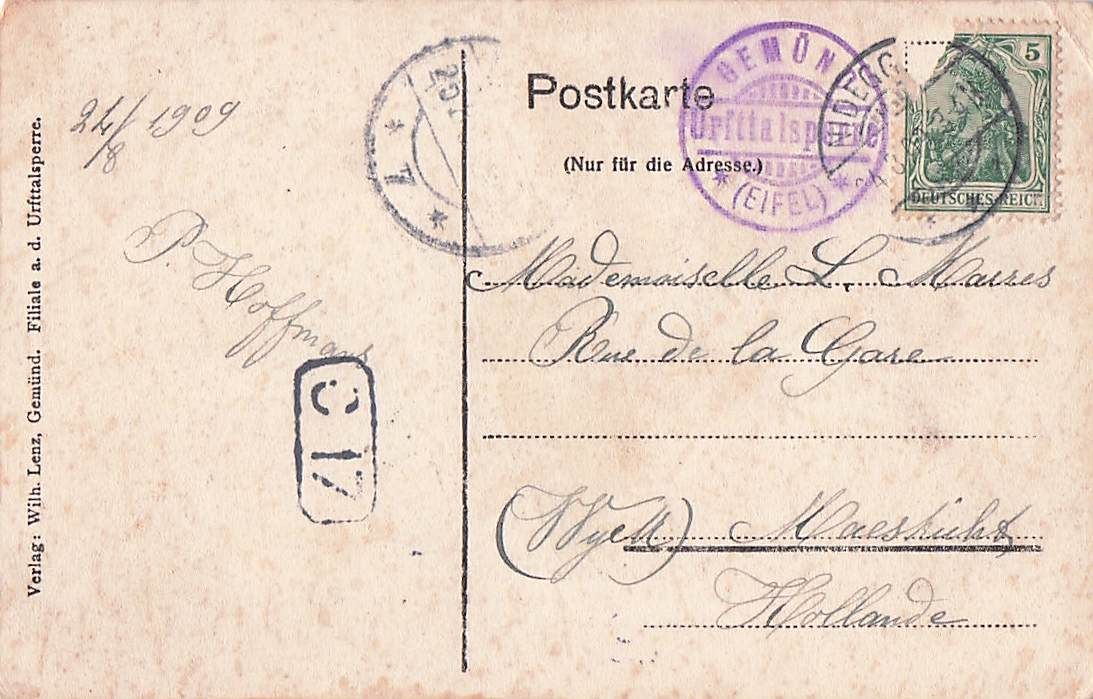 Postkarte
(Nur für die Adresse.)
GEMÜN
Urfttalsperre
(EIFEL)
NIDEGG
5
DEUTSCHES REICH
24/8 1909
P. Hoffmans
Mademoiselle L. Marres
Rue de la Gare
(Wyck) Maestricht
Hollande
C 17
* 7 *
Verlag: Wilh. Lenz, Gemünd. Filiale a. d. Urfttalsperre.